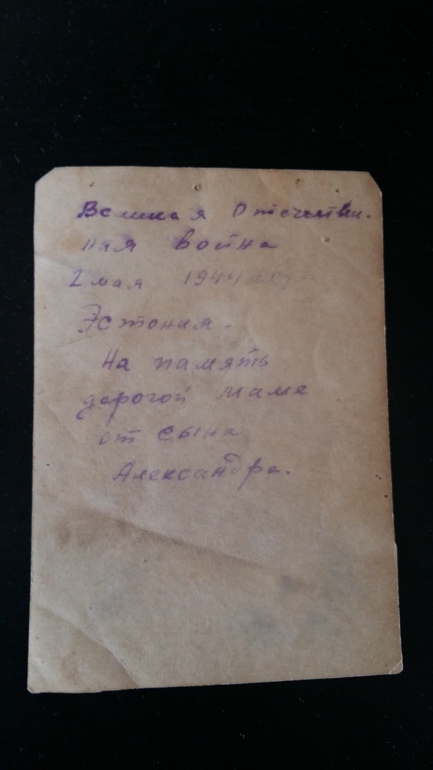 Великая Отечествен-
ная война
2 мая 1944 года
Эстония.
На память
дорогой маме
от сына
Александра.